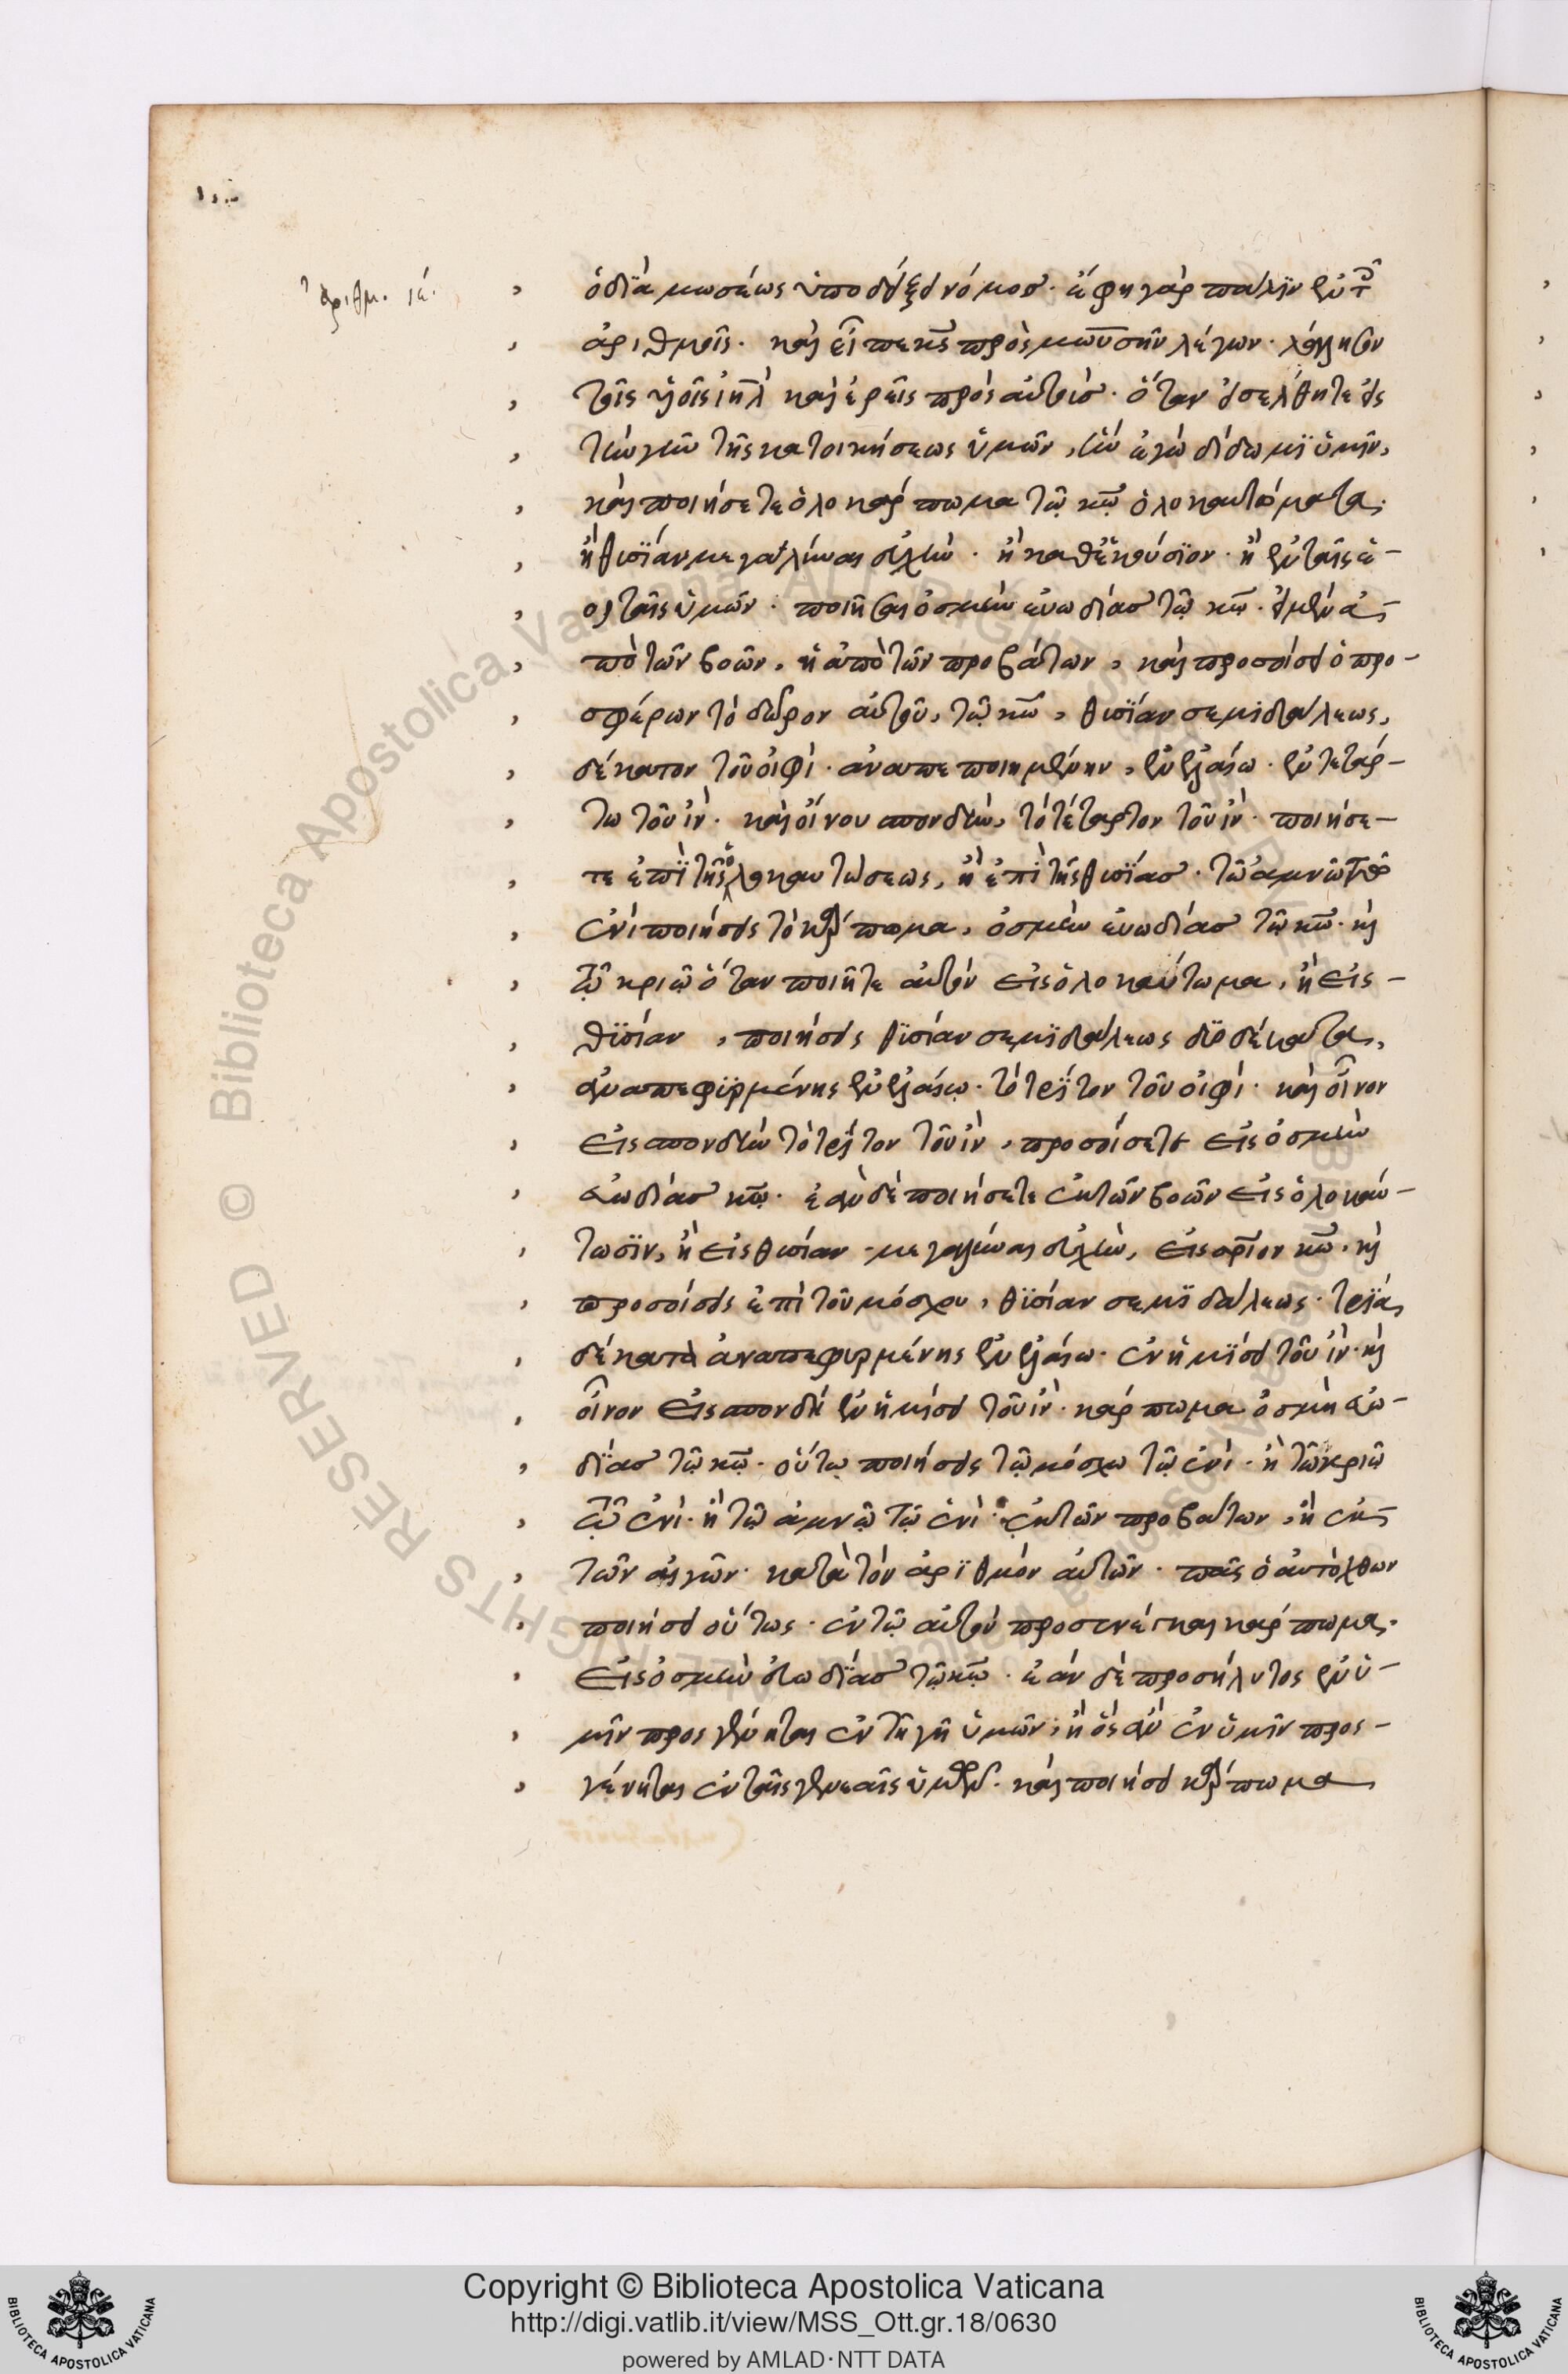 ἀριθμ. ιέ.
ὁ διὰ μωσέως ὑποδείξει νόμος. ἔφη γὰρ πάλιν ἐν τοῖς
ἀριθμοῖς. καὶ εἶπε κς πρὸς μωυσῆν λέγων. λάλησον
τοῖς υἱοῖς ιηλ καὶ ἐρεῖς πρὸς αὐτούς. ὅταν εἰσέλθητε εἰς
τὴν γῆν τῆς κατοικήσεως ὑμῶν, ἣν ἐγὼ δίδωμι ὑμῖν,
καὶ ποιήσετε ὁλοκάρπωμα τῷ κῷ ὁλοκαυτόματα.
ἢ θυσίαν μεγαλύναι εὐχὴν. ἢ καθ' ἑκούσιον. ἢ ἐν ταῖς ἑ-
ορταῖς ὑμῶν. ποιῆσαι ὀσμὴν εὐωδίας τῷ κῷ. εἰ μὲν ἀ-
πὸ τῶν βοῶν, ἢ ἀπὸ τῶν προβάτων, καὶ προσοίσει ὁ προ-
σφέρων τὸ δῶρον αὐτοῦ, τῷ κῷ, θυσίαν σεμιδάλεως,
δέκατον τοῦ οἰφὶ. ἀναπεποιημένην, ἐν ἐλαίω. ἐν τετάρ-
τω τοῦ ἲν. καὶ οἴνου σπονδὴν, τὸ τέταρτον τοῦ ἲν. ποιήσε-
τε ἐπὶ τῆς ὁλοκαυτώσεως, ἢ ἐπὶ τῆς θυσίας. τῶ ἀμνῶ τῶ
ἑνὶ ποιήσεις τὸ κάρπωμα, ὀσμὴν εὐωδίας τῷ κῷ. καὶ
τῷ κριῷ ὅταν ποιῆτε αὐτὸν εἰς ὁλοκαύτωμα, ἢ εἰς-
θυσίαν, ποιήσεις θυσίαν σεμιδάλεως δύο δέκατα,
ἀναπεφυρμένης ἐν ἐλαίῳ. τὸ τρίτον τοῦ οἰφὶ. καὶ οἶνον
εἰς σπονδὴν τὸ τρίτον τοῦ ἲν, προσοίσετε εἰς ὀσμὴν
εὐωδίας κῷ. ἐὰν δὲ ποιήσετε ἐκ τῶν βοῶν εἰς ὁλοκαύ-
τωσιν, ἢ εἰς θυσίαν μεγαλύναι εὐχὴν, εἰς σριον κῷ. καὶ
προσοίσεις ἐπὶ τοῦ μόσχου, θυσίαν σεμιδάλεως. τρία
δέκατα ἀναπεφυρμένης ἐν ἐλαίω. ἐν ἡμίσει τοῦ ἲν. καὶ
οἶνον εἰς σπονδὴ ἐν ἡμίσει τοῦ ἲν. κάρπωμα ὀσμὴ εὐω-
δίας τῷ κῷ. οὕτω ποιήσεις τῷ μόσχω τῷ ἑνὶ. ἢ τῷ κριῷ
τῷ ἑνὶ. ἢ τῷ ἀμνῷ τῷ ἑνὶ ἐκ τῶν προβάτων, ἢ ἐκ-
τῶν αἰγῶν. κατὰ τὸν ἀριθμὸν αὐτῶν. πᾶς ὁ αὐτόχθων
ποιήσει οὕτως. ἐν τῷ αὐτὸν προσενέγκαι κάρπωμα.
εἰς ὀσμὴν εὐωδίας τῷ κῷ. ἐὰν δὲ προσήλυτος ἐν ὑ-
μῖν προσγένηται ἐν τῇ γῇ ὑμῶν. ἢ ὃς ἂν ἐν ὑμῖν προσ-
γένηται ἐν ταῖς γενεαῖς ὑμῶν. καὶ ποιήσει κάρπωμα
Biblioteca Apostolica Vaticana
Copyright © Biblioteca Apostolica Vaticana
http://digi.vatlib.it/view/MSS_Ott.gr.18/0630
powered by AMLAD·NTT DATA
BIBLIOTECA APOSTOLICA VATICANA
BIBLIOTECA APOSTOLICA VATICANA